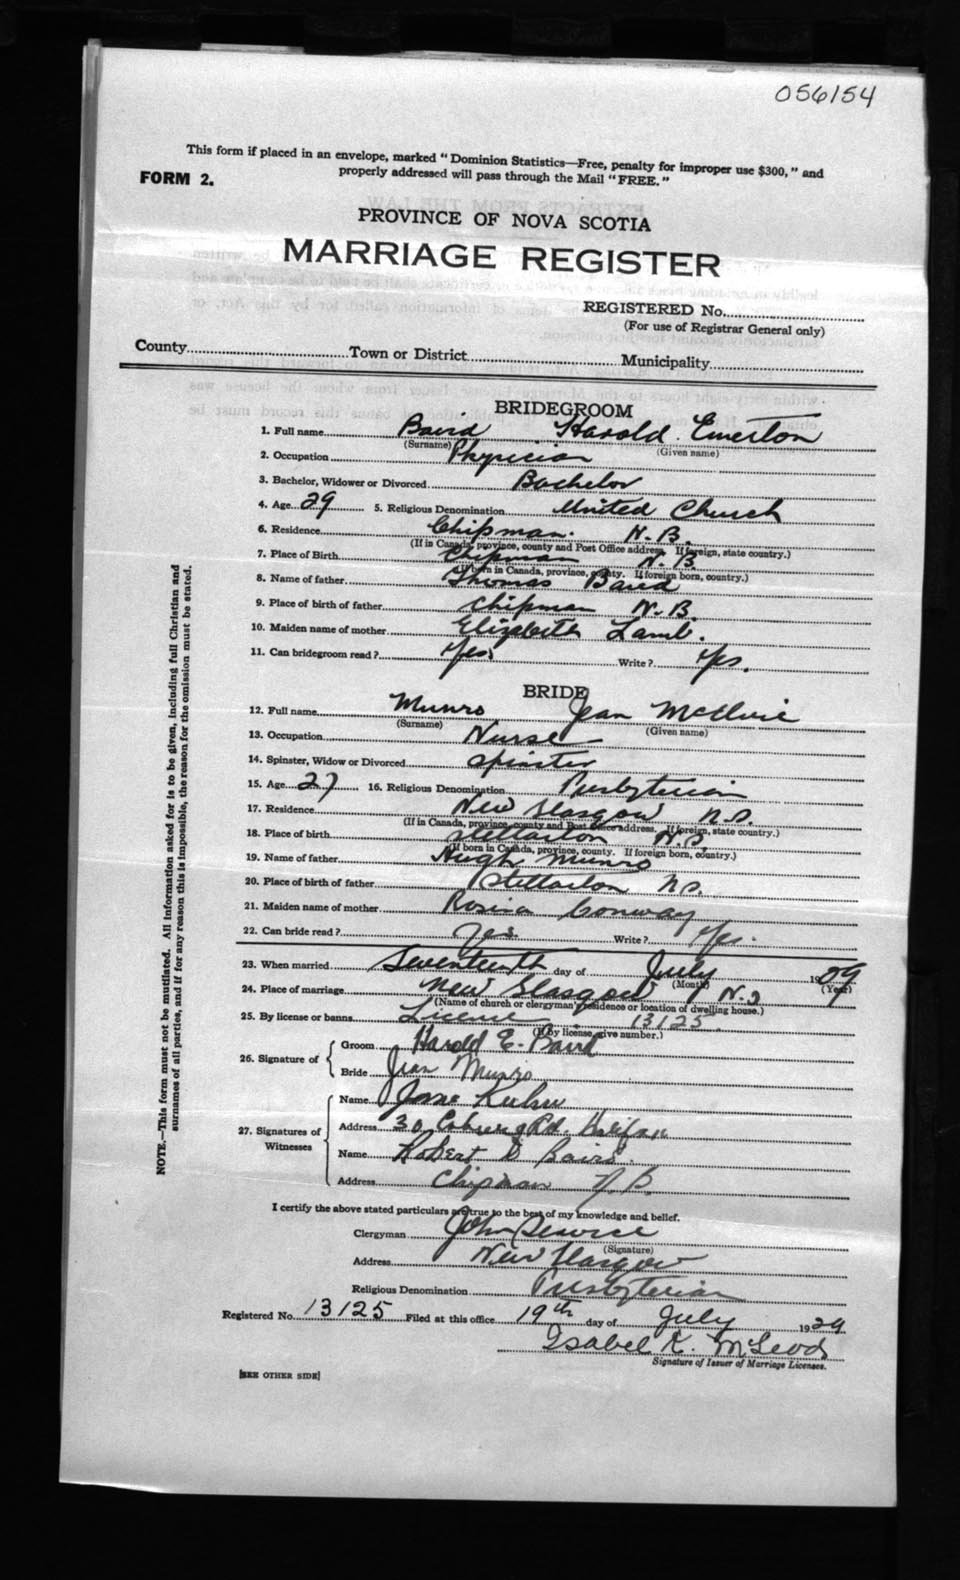 056154
This form if placed in an envelope, marked "Dominion Statistics—Free, penalty for improper use $300," and
FORM 2. properly addressed will pass through the Mail "FREE."
PROVINCE OF NOVA SCOTIA
MARRIAGE REGISTER
REGISTERED No.
(For use of Registrar General only)
County Town or District Municipality
BRIDEGROOM
1. Full name Baird Harold Emerton
(Surname) (Given name)
2. Occupation Physician
3. Bachelor, Widower or Divorced Bachelor
4. Age 29 5. Religious Denomination United Church
6. Residence Chipman. N.B.
(If in Canada, province, county and Post Office address. If foreign, state country.)
7. Place of Birth Chipman N.B.
(If born in Canada, province, county. If foreign born, country.)
8. Name of father Thomas Baird
9. Place of birth of father Chipman N.B.
10. Maiden name of mother Elizabeth Lamb.
11. Can bridegroom read? Yes Write? Yes.
BRIDE
12. Full name Munro Jean
(Surname) (Given name)
13. Occupation Nurse
14. Spinster, Widow or Divorced Spinster
15. Age 27 16. Religious Denomination Presbyterian
17. Residence New Glasgow N.S.
(If in Canada, province, county and Post Office address. If foreign, state country.)
18. Place of birth Stellarton N.S.
(If born in Canada, province, county. If foreign born, country.)
19. Name of father Hugh Munro
20. Place of birth of father Stellarton N.S.
21. Maiden name of mother Rosina Conway
22. Can bride read? Yes Write? Yes.
23. When married Seventeenth day of July 1929
(Month) (Year)
24. Place of marriage New Glasgow N.S
(Name of church or clergyman's residence or location of dwelling house.)
25. By license or banns License 13125
(If by license, give number.)
26. Signature of Groom Harold E. Baird
Bride Jean Munro
27. Signatures of Witnesses
Name
Address 30 Coburg Rd. Halifax
Name Robert D Baird.
Address Chipman N.B.
I certify the above stated particulars are true to the best of my knowledge and belief.
Clergyman John
(Signature)
Address New Glasgow
Religious Denomination Presbyterian
Registered No. 13125 Filed at this office 19th day of July 1929
Isabel K. McLeod
Signature of Issuer of Marriage Licenses.
[SEE OTHER SIDE]
NOTE.—This form must not be mutilated. All information asked for is to be given, including full Christian and
surnames of all parties, and if for any reason this is impossible, the reason for the omission must be stated.